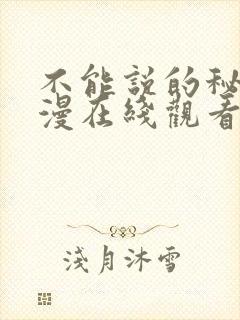 不能説的秘
漫在綫觀看
淺月沐雪